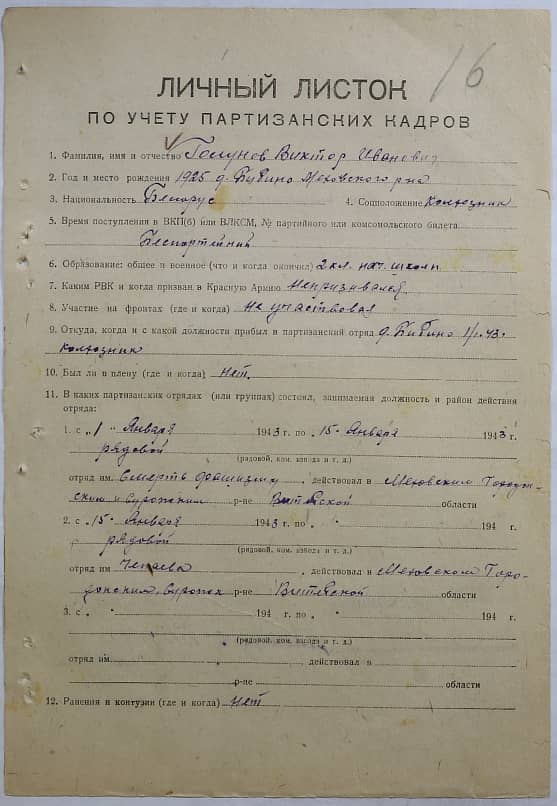 16
ЛИЧНЫЙ ЛИСТОК
ПО УЧЕТУ ПАРТИЗАНСКИХ КАДРОВ
1. Фамилия, имя и отчество Голунов Виктор Иванович
2. Год и место рождения 1925 д. Бибино Меховского р-на
3. Национальность Белорус 4. Соцположение Колхозник
5. Время поступления в ВКП(б) или ВЛКСМ, № партийного или комсомольского билета
Беспартейний
6. Образование: общее и военное (что и когда окончил) 2 кл. нач. школы
7. Каким РВК и когда призван в Красную Армию Непризивался
8. Участие на фронтах (где и когда) Не участвовал
9. Откуда, когда и с какой должности прибыл в партизанский отряд д. Бибино 1/1-43.
колхозник
10. Был ли в плену (где и когда) Нет.
11. В каких партизанских отрядах (или группах) состоял, занимаемая должность и район действия
отряда:
1. с „1 " Января 1943 г. по „15" Января 1943 г.
рядовой
(рядовой, ком. взвода и т. д.)
отряд им. Смерть фашизму, действовал в Меховским Городок-
ским и Суражским р-не Витебской области
2. с „15" Января 1943 г. по „ " 194 г.
рядовой
(рядовой, ком. взвода и т. д.)
отряд им Чепаева, действовал в Меховском Горо-
докским, Суражск р-не Витебской области
3. с „ " 194 г. по „ " 194 г.
(рядовой, ком. взвода и т. д.)
отряд им. действовал в
р-не области
12. Ранения и контузии (где и когда) Нет